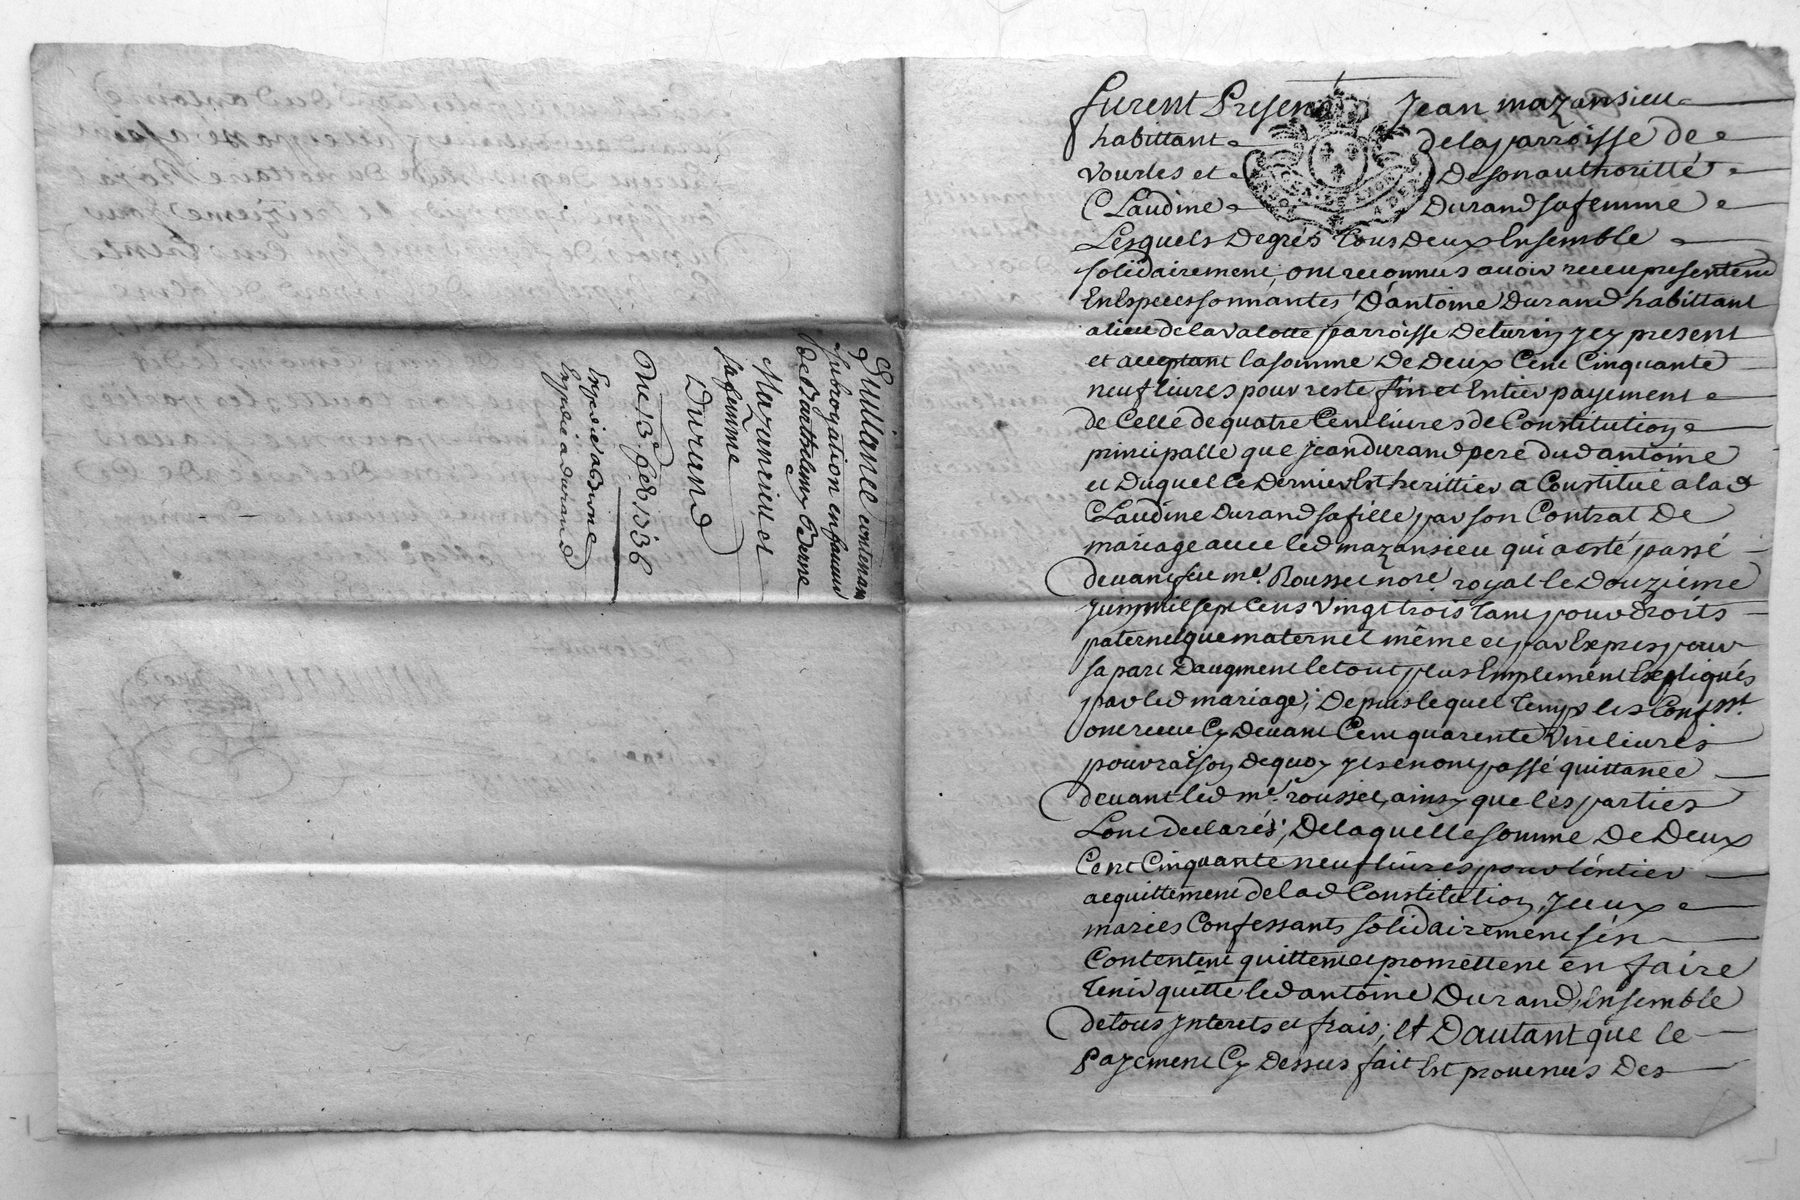 Quittance contenant
subrogation en faveur
de Barthelemy Berne
Mazansieu et
sa femme
Durand
Du 13e feb. 1736
Expedié a Berne
Expedié a durand
furent Presens Jean mazansieu
habittant de la parroisse de
vourles et de son authoritté
Claudine Durand sa femme
Lesquels de grés tous deux Ensemble
solidairement, ont reconnus avoir receu presentement
En Especes sonnantes d'antoine Durand habittant
a lieu de la valotte parroisse de turin jcy present
et acceptant la somme de Deux Cent Cinquante
neuf livres pour reste fin et Entier payement
de Celle de quatre Cent livres de Constitution
principalle que jean durand pere dud antoine
et duquel Ce dernier Est herittier a Constitué a lad
Claudine Durand sa fille par son Contrat De
mariage avec led mazansieu qui a esté passé
devant feu me. Rousset nore. royal le Douzieme
juin mil sept Cens vingt trois tant pour droits
paternel que maternel même et par Expres pour
sa part D'augment le tout plus Emplement Expliqués
par led mariage; Depuis lequel Temps les Conf.nt
ont receu Cy devant Cent quarente Vn livres
pour raison de quoy jls en ont passé quittance
devant led me. rousset, ainsy que les parties
L'ont declarés; De laquelle somme De Deux
Cent Cinquante neuf livres pour l'entier
acquittement de lad Constitution, jceux
mariés Confessants solidairement s'en
Contentent quittent et promettent en faire
Tenir quitte led antoine Durand, Ensemble
de tous jnterets et frais; Et D'autant que le
Payement Cy Dessus fait Est provenus Des